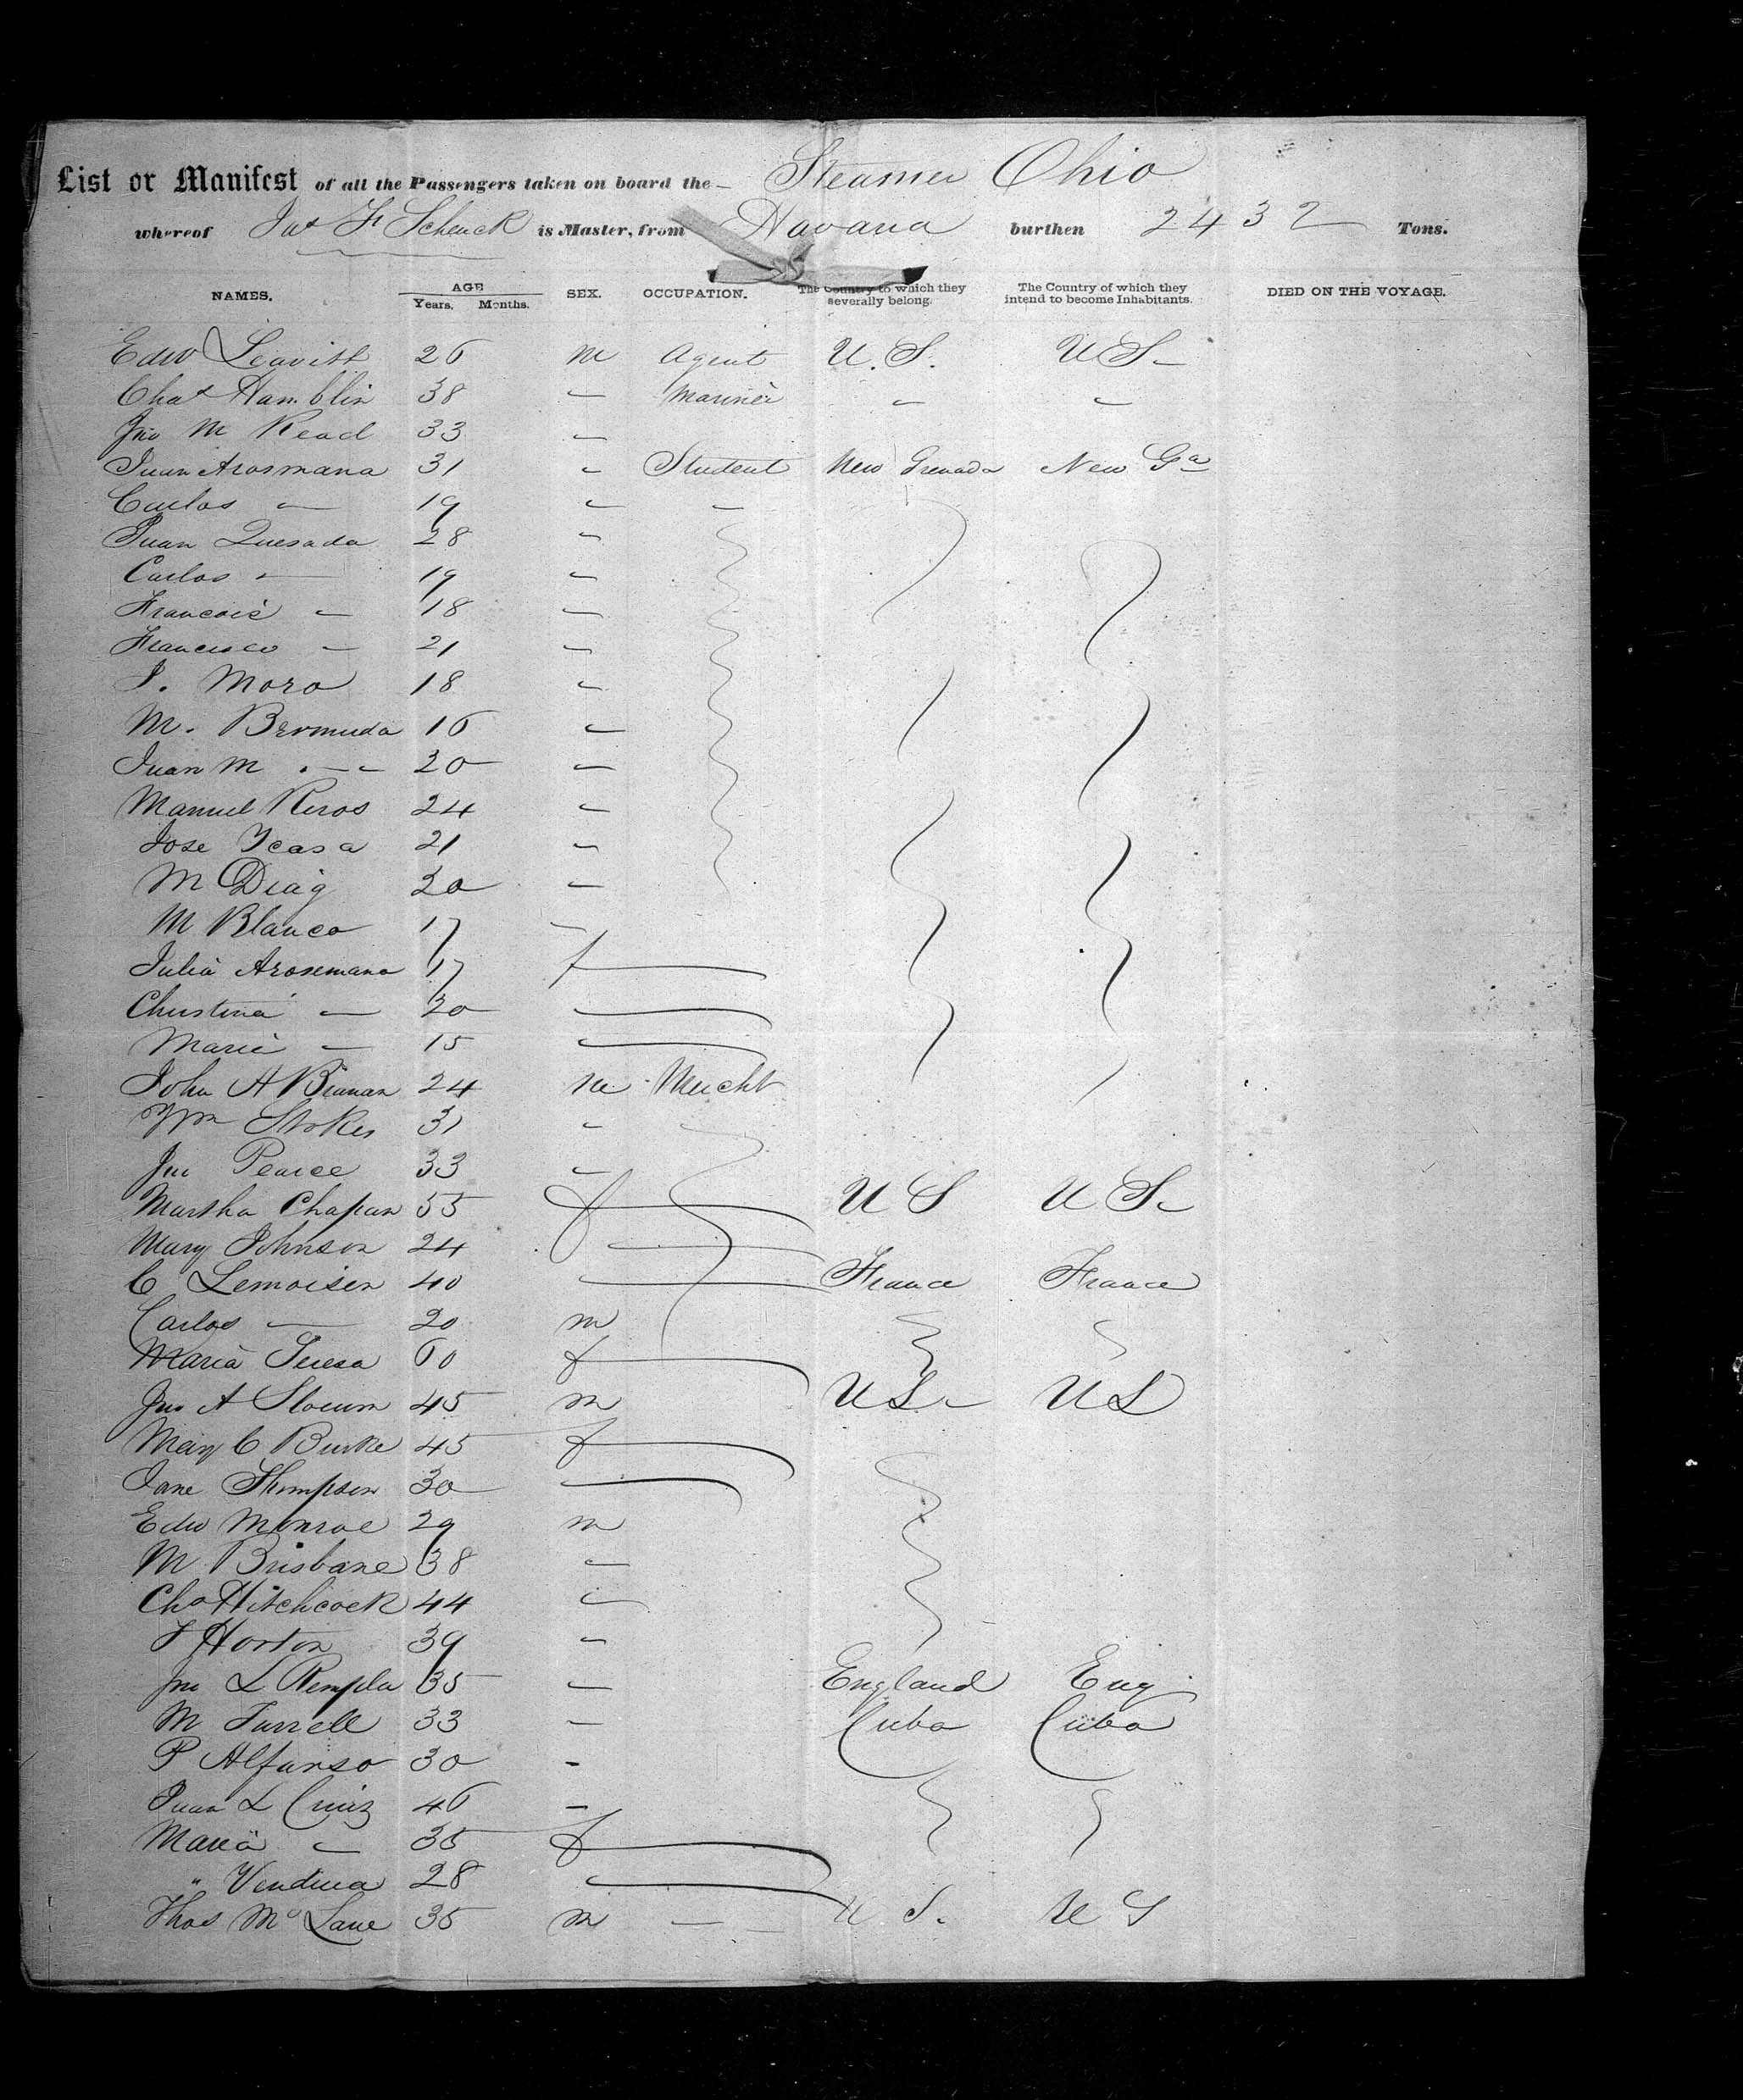 List or Manifest of all the Passengers taken on board the Steamer Ohio
whereof Jas F Schenck is Master, from Havana burthen 2432 Tons.
NAMES. AGE Years. Months. SEX. OCCUPATION. The Country to which they severally belong. The Country of which they intend to become Inhabitants. DIED ON THE VOYAGE.
Edw Leavitt 26 m Agent U.S. US
Chas Hamblin 38 – Mariner – –
Jno M Read 33 –
Juan Arosmana 31 – Student New Grenada New Ga
Carlos – 19 – –
Juan Quesada 28 –
Carlos – 19 –
Francois – 18 –
Francisco – 21 –
J. Moro 18 –
M. Bermuda 16 –
Juan M – 20 –
Manuel Riros 24 –
Jose Ycasa 21 –
M Diag 20 –
M Blanco 17 –
Julia Arosemana 17 f
Christina – 20 –
Maria – 15 –
John A 24 m Mercht
Wm Stokes 31 –
Jno Pearce 33 –
Martha Chapan 55 f US US
Mary Johnson 24 –
C Lemoisen 40 – France France
Carlos – 20 m
Maria Teresa 60 f
Jno A Slocum 45 m US US
Mary C Burke 45 f
Jane Thompson 30 –
Edw Monroe 29 m
M Brisbane 38 –
Chs Hitchcock 44 –
F Horton 39 –
Jno L 35 – England Eng
M Turrell 33 – Cuba Cuba
P Alfanso 30 –
Juan L Cruiz 46 –
Maria – 35 f
" 28 –
Thos McLane 35 m – U S. U S